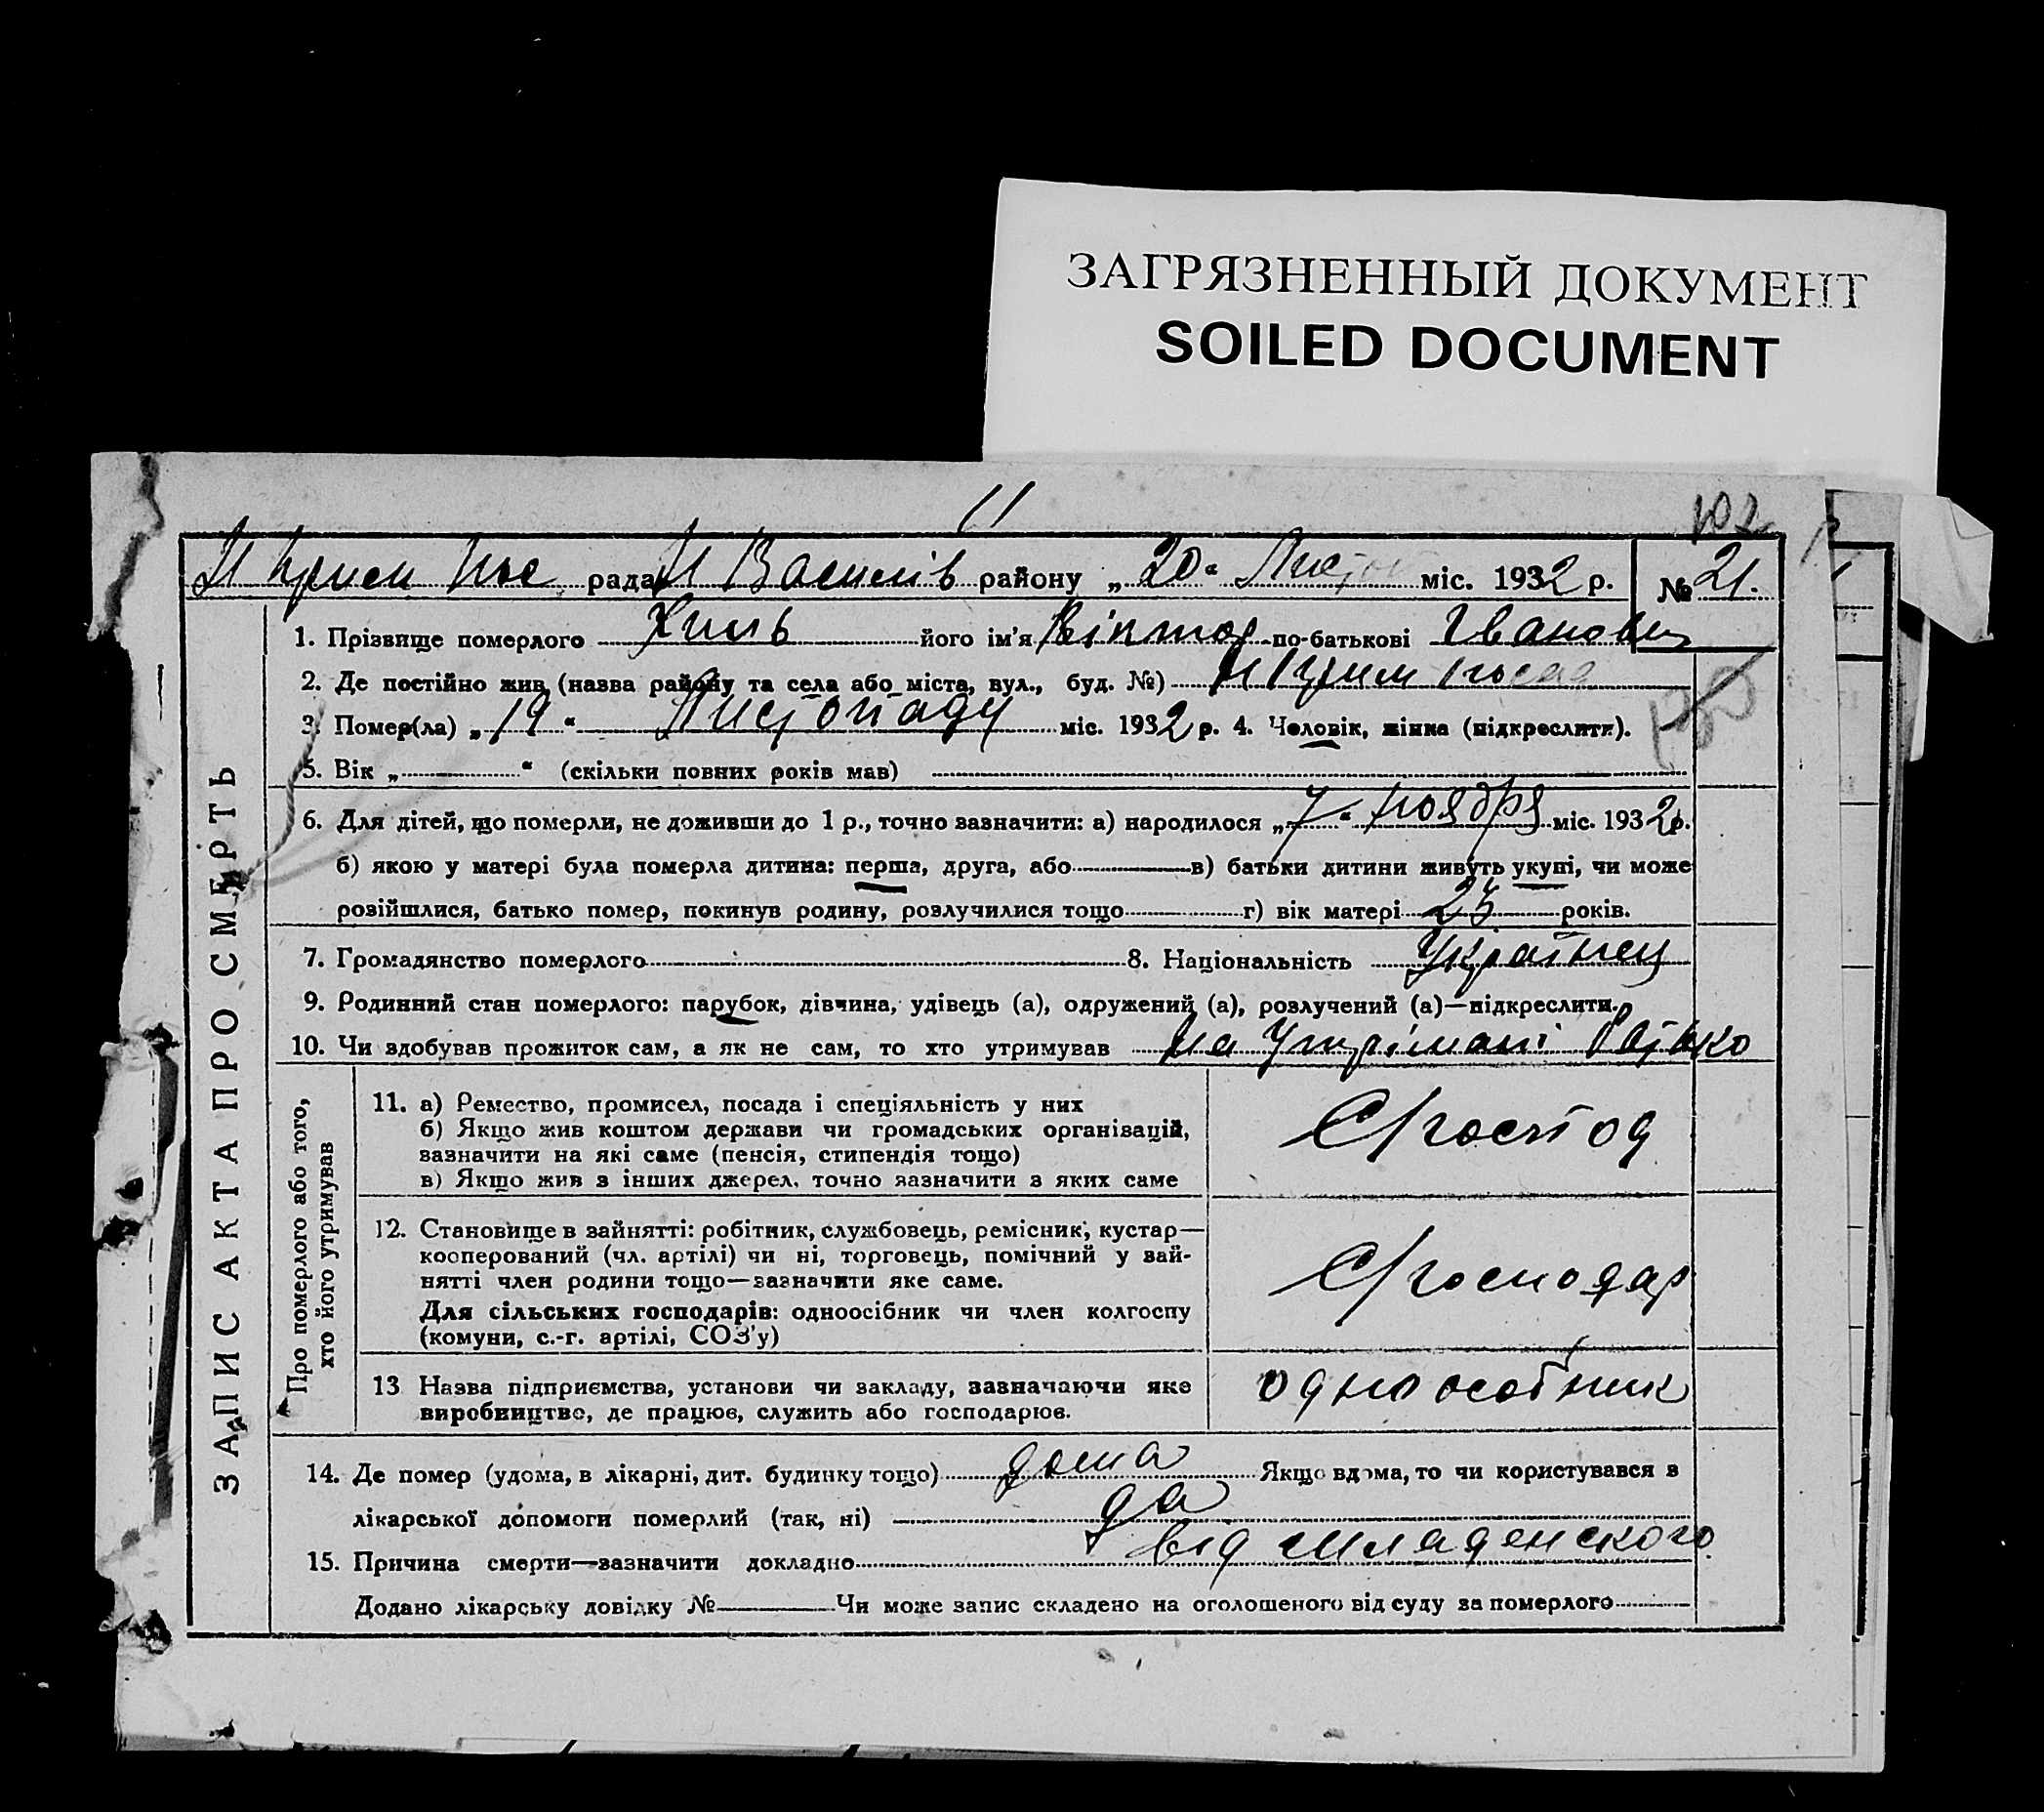 ЗАГРЯЗНЕННЫЙ ДОКУМЕНТ
SOILED DOCUMENT
11
102
рада М Василів району „20“ міс. 1932 р. № 21.
ЗАПИС АКТА ПРО СМЕРТЬ
1. Прізвище померлого його ім'я Віктор по-батькові Іванович
2. Де постійно жив (назва району та села або міста, вул., буд. №)
3. Помер(ла) „19“ Листопаду міс. 1932 р. 4. Чоловік, жінка (підкреслити).
5. Вік „ “ (скільки повних років мав)
6. Для дітей, що померли, не доживши до 1 р., точно зазначити: а) народилося „7“ ноября міс. 1932 р.
б) якою у матері була померла дитина: перша, друга, або в) батьки дитини живуть укупі, чи може
розійшлися, батько помер, покинув родину, розлучилися тощо г) вік матері років.
7. Громадянство померлого 8. Національність Українец
9. Родинний стан померлого: парубок, дівчина, удівець (а), одружений (а), розлучений (а)—підкреслити.
10. Чи здобував прожиток сам, а як не сам, то хто утримував на Утрімані Батько
Про померлого або того, хто його утримував
11. а) Ремество, промисел, посада і спеціяльність у них
б) Якщо жив коштом держави чи громадських організацій,
зазначити на які саме (пенсія, стипендія тощо)
в) Якщо жив з інших джерел, точно зазначити з яких саме
С/господ
12. Становище в зайнятті: робітник, службовець, ремісник, кустар—
кооперований (чл. артілі) чи ні, торговець, помічний у зай-
нятті член родини тощо—зазначити яке саме.
Для сільських господарів: одноосібник чи член колгоспу
(комуни, с.-г. артілі, СОЗ'у)
С/господар
13 Назва підприємства, установи чи закладу, зазначаючи яке
виробництво, де працює, служить або господарює.
одноособник
14. Де помер (удома, в лікарні, дит. будинку тощо) дома Якщо вдома, то чи користувався з
лікарської допомоги померлий (так, ні) да
15. Причина смерти—зазначити докладно від младенского
Додано лікарську довідку № Чи може запис складено на оголошеного від суду за померлого